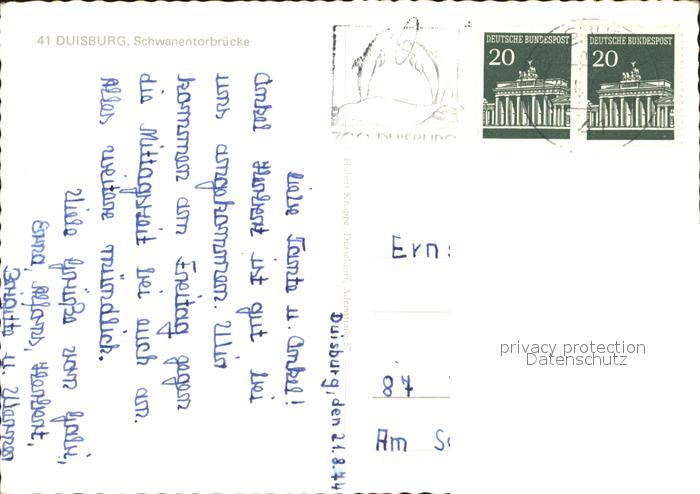 41 DUISBURG, Schwanentorbrücke
DEUTSCHE BUNDESPOST
20
DEUTSCHE BUNDESPOST
20
ZOO DUISBURG
Duisburg, den 21.8.74
Liebe Tante u. Onkel!
Onkel Herbert ist gut bei
uns angekommen. Wir
kommen am Freitag gegen
die Mittagszeit bei euch an.
Alles weitere mündlich.
Viele Grüße von
Erna, Alfons, Herbert,
Brigitte u.
Ern
87
Am Sc
privacy protection
Datenschutz